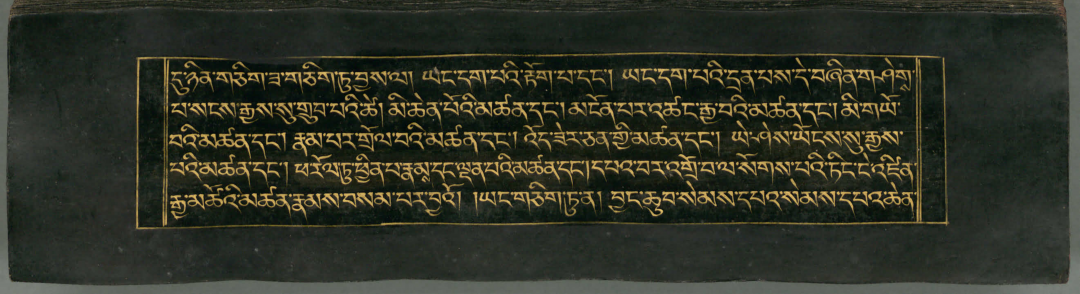 དུ་ཉིན་གཅིག་ཟ་གཅིག་ཏུ་བྱས་ལ། ཡང་དག་པའི་རྟོག་པ་དང་། ཡང་དག་པའི་དྲན་པས་དེ་བཞིན་གཤེགས་
པ་སངས་རྒྱས་སུ་གྲུབ་པའི་ཚེ། མི་ཆེན་པོའི་མཚན་དང་། མངོན་པར་འཚང་རྒྱ་བའི་མཚན་དང་། མི་གཡོ་
བའི་མཚན་དང་། རྣམ་པར་གྲོལ་བའི་མཚན་དང་། འོད་ཟེར་ཅན་གྱི་མཚན་དང་། ཡེ་ཤེས་ཡོངས་སུ་རྒྱས་
པའི་མཚན་དང་། ཕ་རོལ་ཏུ་ཕྱིན་པ་རྣམས་དང་ལྡན་པའི་མཚན་དང་། དཔའ་བར་འགྲོ་བ་ལ་སོགས་པའི་ཏིང་ངེ་འཛིན་
རྒྱ་མཚོའི་མཚན་རྣམས་བསམ་པར་བྱའོ། །ཡང་གཅིག་ཏུ་ན། བྱང་ཆུབ་སེམས་དཔའ་སེམས་དཔའ་ཆེན་